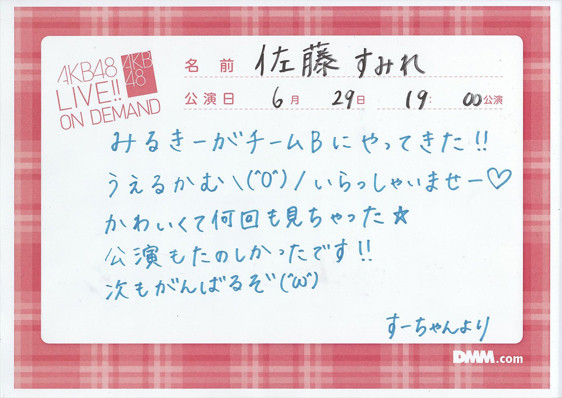 AKB48
LIVE!!
ON DEMAND
AKB
48
名前 佐藤すみれ
公演日 6月 29日 19: 00公演
みるきーがチームBにやってきた!!
うぇるかむ\(^0^)/いらっしゃいませー♡
かわいくて何回も見ちゃった☆
公演もたのしかったです!!
次もがんばるぞ(^ω^)
すーちゃんより
DMM.com